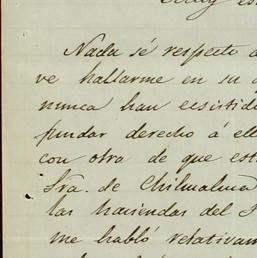 Nada sé respecto
ve hallarme en su
nunca han ecsistid
fundar derecho á ell
con otra de que est
Sra. de Chilmalma
las haciendas del
me habló relativam